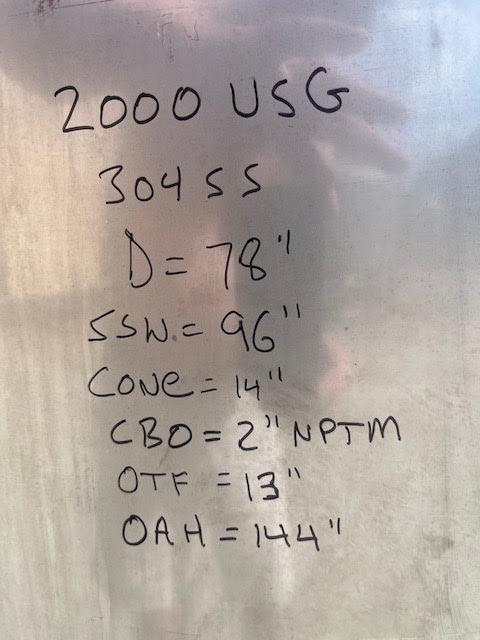 2000 USG
304 SS
D = 78"
SSW. = 96"
CONe = 14"
CBO = 2" NPTM
OTF = 13"
OAH = 144"